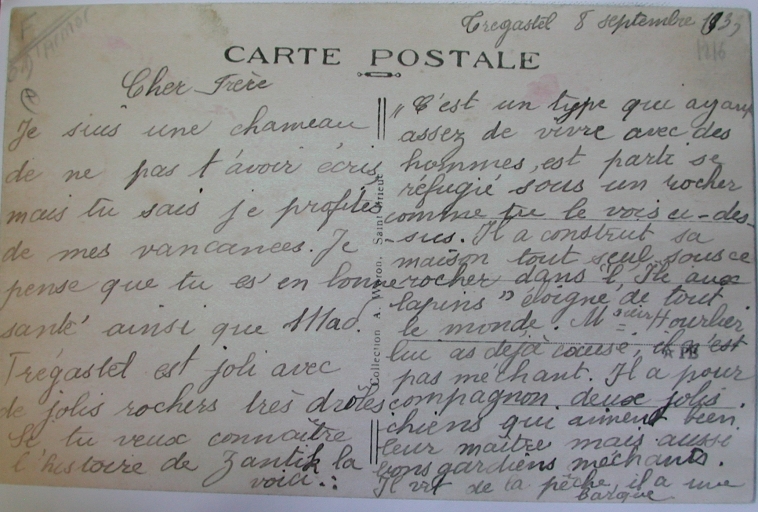 Tregastel 8 septembre 1933
1216
CARTE POSTALE
Cher Frère
Je suis une chameau
de ne pas t'avoir écris
mais tu sais je profites
de mes vancances. Je
pense que tu es en bonne
santé ainsi que Mad.
Trégastel est joli avec
de jolis rochers très drôles
Si tu veux connaître
l'histoire de Zantik la
voici.:
Collection A. Waron, Saint-Brieuc
„ C'est un type qui ayant
assez de vivre avec des
hommes, est parti se
réfugié sous un rocher
comme tu le vois ci-des-
-sus. Il a construt sa
maison tout seul sous ce
rocher dans l'"Ile aux
lapins" éloigné de tout
le monde. Msieur Hourlier
lui as déjà causé, il n'est
pas méchant. Il a pour
compagnon deux jolis
chiens qui aiment bien
leur maître mais aussi
bons gardiens méchants.
Il vit de la pêche, il a une
barque